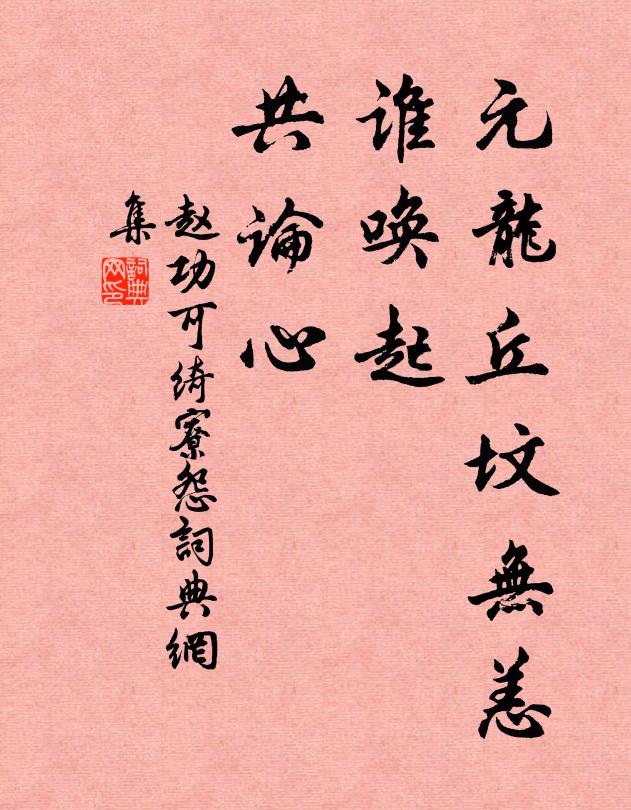 元龍丘坟無恙
谁唤起
共論心
赵功可绮寮怨詞典網
集
詞典
网印